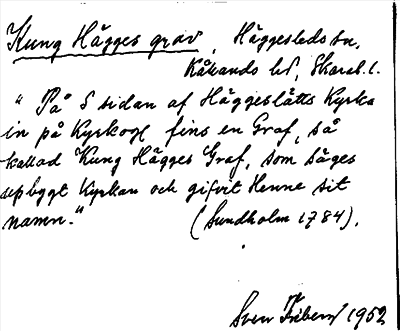 Kung Hägges grav, Häggesleds sn,
Kållands hd, Skarab. l.
"På S sidan af Häggeslätts Kyrka
in på Kyrkog. fins en Graf, så
kallad Kung Hägges Graf, som säges
upbygt Kyrkan och gifvit Henne sit
namn."
(Sundholm 1784).
Sven Friberg 1952